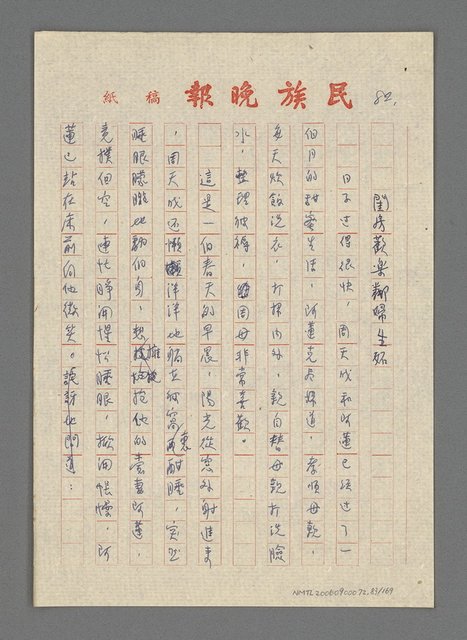 82.
民族晚報 稿紙
閨房歡樂鄰婦生妬
日子过得很快，周天成和阿蓮已经过了一
個月的甜蜜生活，阿蓮克尽婦道，孝順母親，
每天炊飯洗衣，打掃內外，親自替母親打洗臉
水，整理被褥，周母非常喜歡。
這是一個春天的早晨，陽光從窓外射進来
，周天成还懶洋洋地躺在被窩裏酣睡，突然
睡眼朦朧地翻個身，想擁抱他的妻妻阿蓮，
竟撲個空，連忙睁開惺忪睡眼，掀開帳幔，阿
蓮已站在床前向他微笑。
NMTL20060900072.83/169